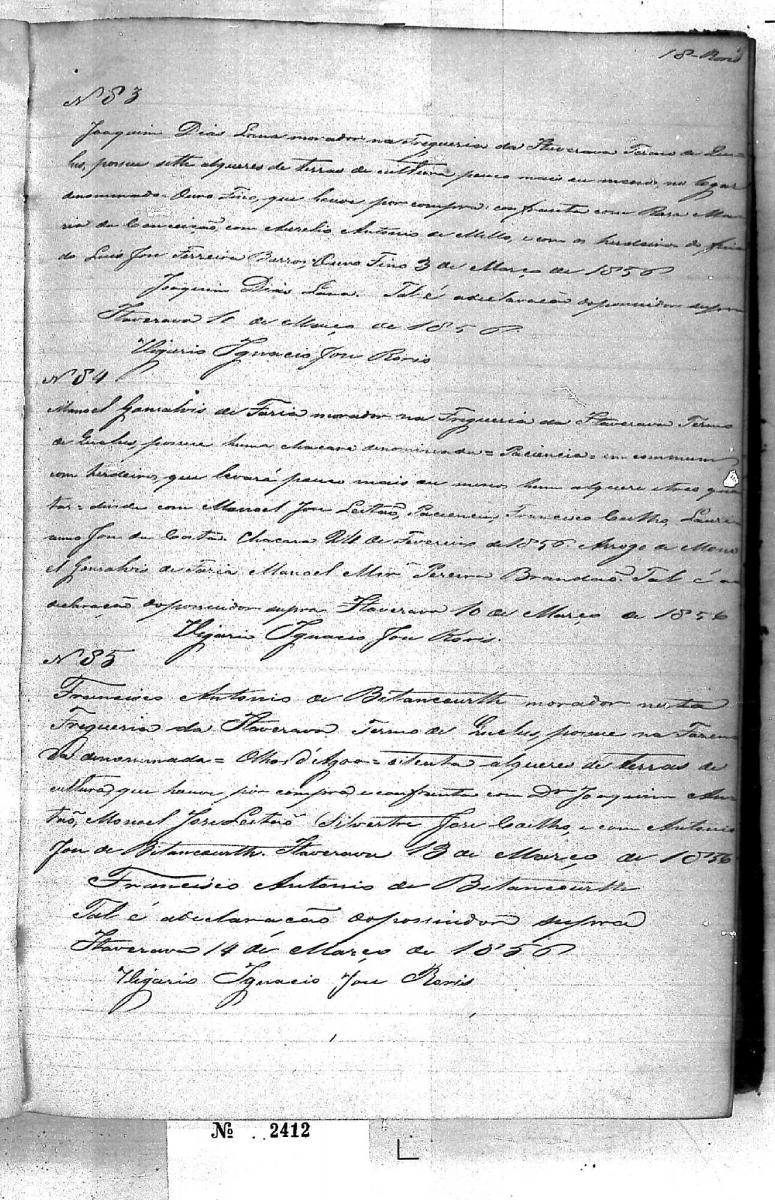 18 - Roris
Nº 83
Joaquim Dias Lana morador na Fregueria da Itaverava Termo de Que-
lus, possue sette alqueres de terras de cultura pouco mais ou menos, no lugar
denominado Ouro Fino, que houve por compra: confronta com Rosa Ma-
ria da Conceição, com Aurelio Antonio de Mello, e com os herdeiros do fina-
do Luis Jose Ferreira Barros, Ouro Fino 3 de Março de 1856
Joaquim Dias Lana. Tal é a declaração do possuidor supra
Itaverava 10 de Março de 1856.
Vigario Ignacio Jose Roris
Nº 84
Manoel Gonsalvis de Faria morador na Fregueria da Itaverava Termo
de Quelus, possue huma chacara denominada = Paciencia = em commum
com herdeiros, que levará pouco mais ou menos hum alquere e tres quar-
tas = divide com Manoel Jose Leitaõ, Paciencia, Francisco Coelho, Lauri-
anno Jose da Costa. Chacara 24 de Fevereiro de 1856. Arrogo de Mano-
el Gonsalvis de Faria Manoel Pereira Brandaõ. Tal é a
declaração do possuidor supra Itaverava 10 de Março de 1856
Vigario Ignacio Jose Roris.
Nº 85
Francisco Antonio de Betancourth morador nesta
Fregueria da Itaverava Termo de Quelus, possue na Fazen-
da denominada = Olhos d'Agoa = oitenta alqueres de terras de
cultura, que houve por compra e confronta com Dr Joaquim An-
taõ, Manoel Jose Leitaõ Silvestre Jose Coelho, e com Antonio
Jose de Betancourth. Itaverava 13 de Março de 1856
Francisco Antonio de Betancourth
Tal é a declaração do possuidor supra
Itaverava 14 de Março de 1856
Vigario Ignacio Jose Roris
Nº 2412